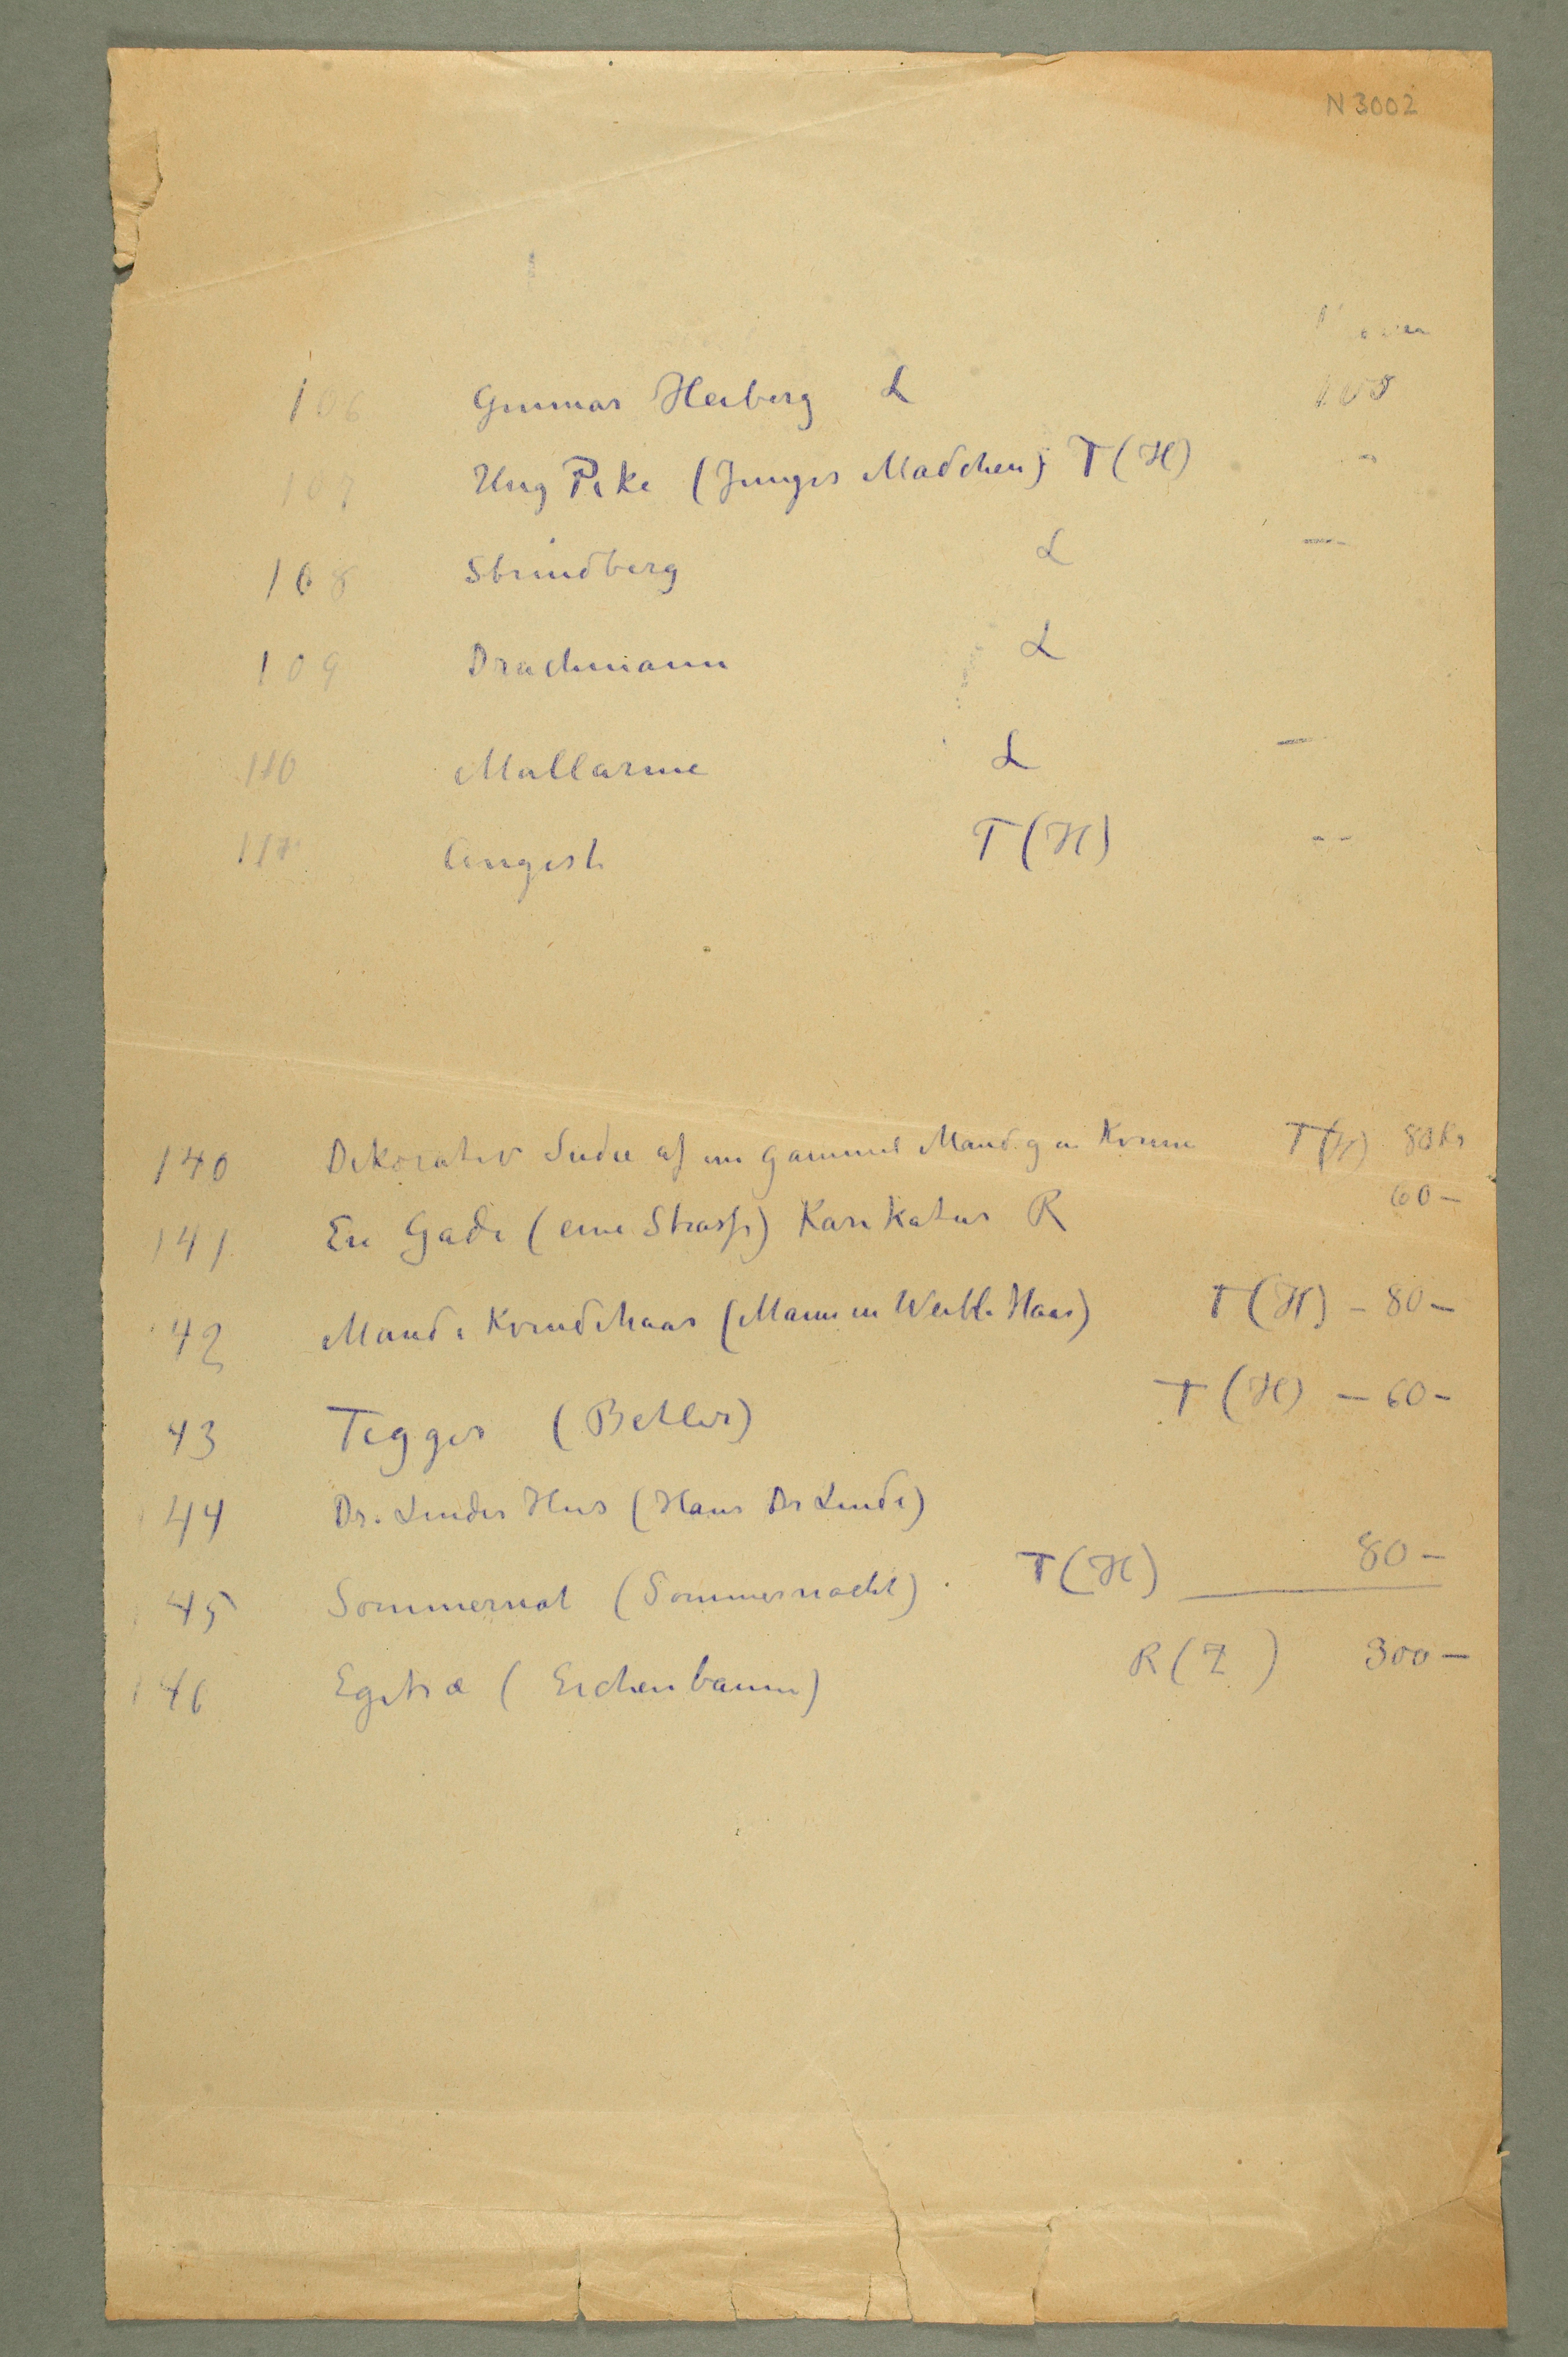 N 3002
106 Gunnar Heiberg L 100
107 Ung Pike (Junges Madchen) T (H) "
108 Strindberg L —
109 Drachmann L
110 Mallarme L —
Angest T (H) --
140 Dekorativ Studie af en gammel Mand og en Kvinne T (H) 80 Kr
141 En Gade (eine Strasse) Karikatur R 60 –
42 Mand i Kvindehaar (Mann in Weibl. Haar) T (H) – 80 –
43 Tigger (Betler) T (H) – 60 –
44 Dr. Lindes Hus (Haus Dr Linde)
45 Sommernat (Sommernacht) T (H) 80 –
146 Egetræ (Eichenbaum) R (Z) 300 –